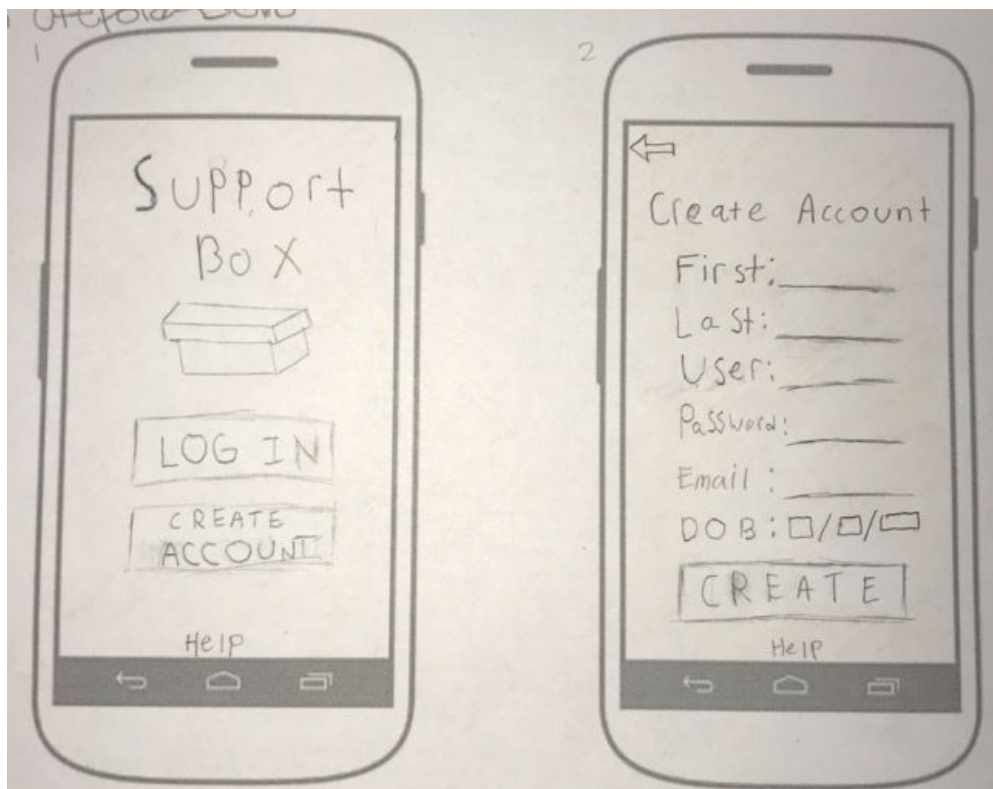 1
Support
Box
LOG IN
CREATE
ACCOUNT
Help
2
Create Account
First:
Last:
User:
Password:
Email:
DOB: / /
CREATE
Help